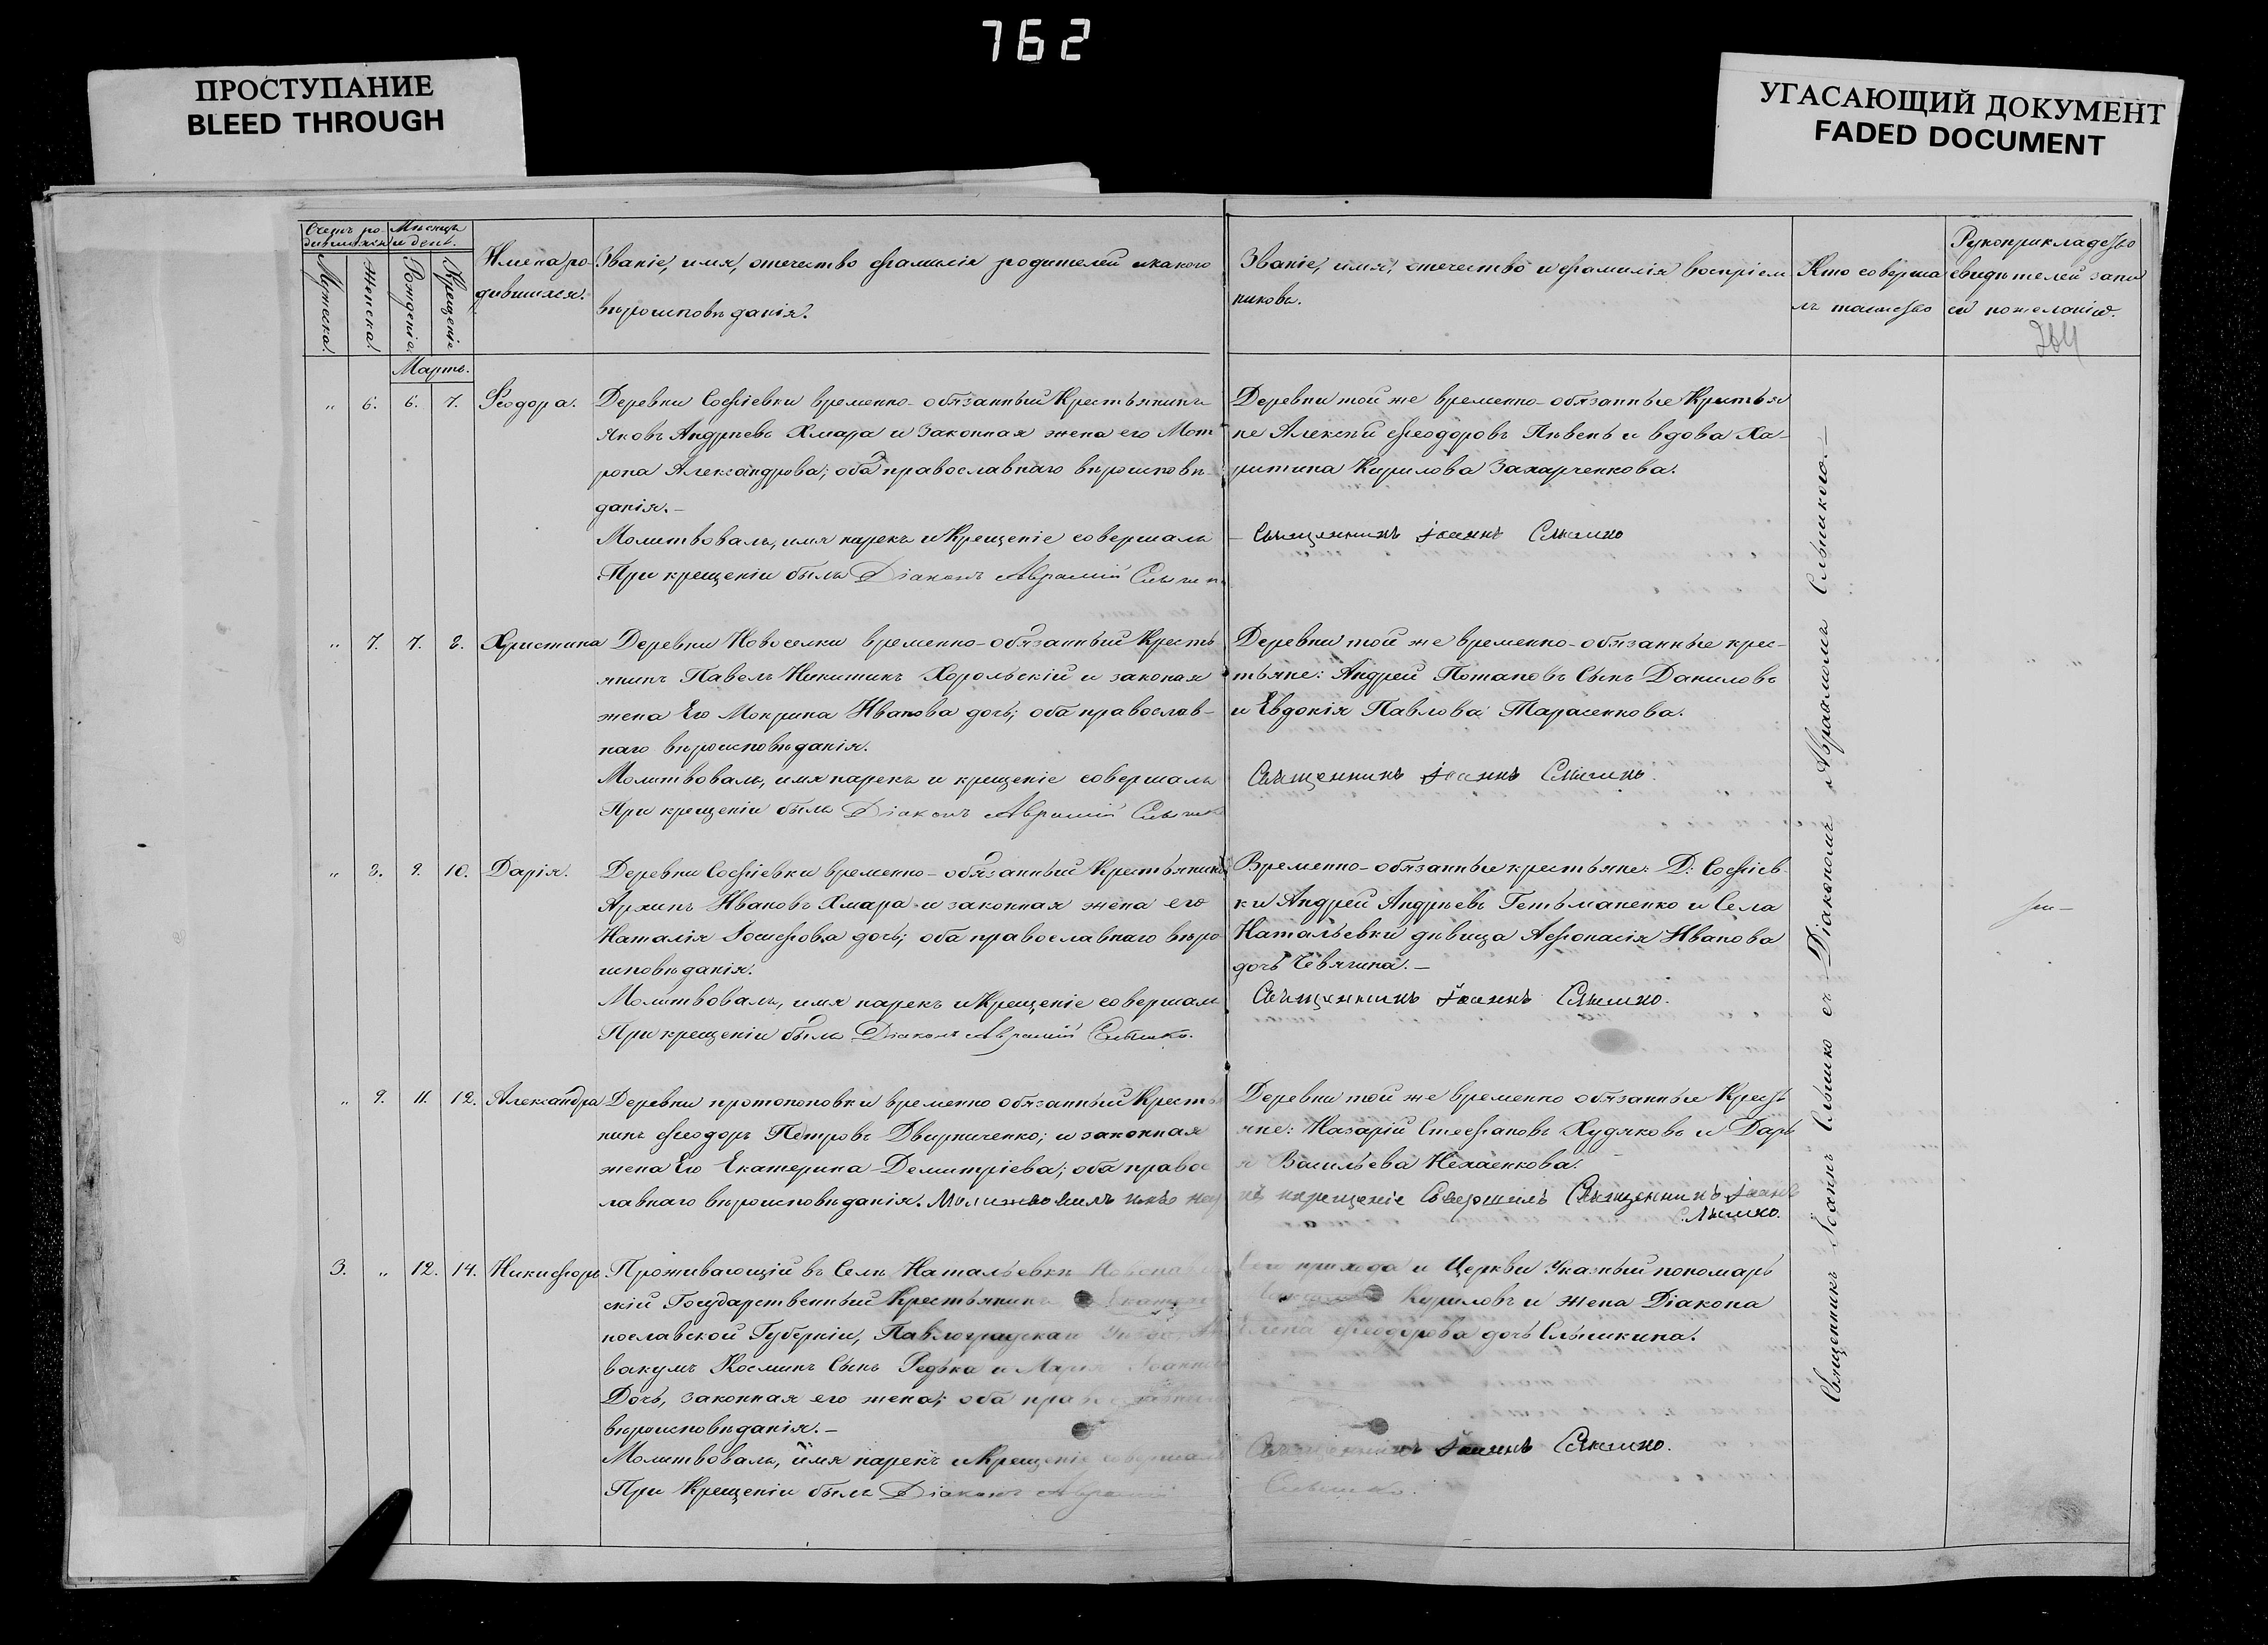 762
ПРОСТУПАНИЕ
BLEED THROUGH
УГАСАЮЩИЙ ДОКУМЕНТ
FADED DOCUMENT
Счетъ ро-
дившихся
Мѣсяцъ
и день.
Мужеска.
Женска.
Рожденія.
Крещенія
Имена ро-
дившихся.
Званіе, имя, отечество фамилія родителей и какого
вѣроисповѣданія.
Званіе, имя, отечество и фамилія воспріем
никовъ.
Кто соверша
лъ таинство
Рукоприкладство
свидѣтелей запи
си по желанію.
Мартъ.
„ 6. 6. 7. Ѳеодора.
Деревни Софіевки временно-обязанный Крестьянинъ
Яковъ Андреевъ Хмара и законная жена его Мот
рона Александрова; оба православнаго вѣроисповѣ-
данія.—
Молитвовалъ, имя нарекъ и Крещеніе совершалъ
При крещеніи былъ Діаконъ Авраамій
Деревни той же временно-обязанные Крестья
не Алексѣй Феодоровъ Пѣвень и вдова Ха-
ритина Кирилова Захарченкова.
Священникъ Іоаннъ Слышко
„ 7. 7. 8. Христина
Деревни Новоселки временно-обязанный Кресть
янинъ Павелъ Никитинъ Хорольскій и законая
жена Его Мокрина Иванова дочь; оба православ-
наго вѣроисповѣданія.
Молитвовалъ, имя нарекъ и крещеніе совершалъ
При крещеніи былъ Діаконъ Авраамій
Деревни той же временно-обязанные крес-
тьяне: Андрей Потаповъ Сынъ Даниловъ
и Евдокія Павлова Тарасенкова.
Священникъ Іоаннъ Слышко.
„ 8. 9. 10. Дарія.
Деревни Софіевки временно-обязанный Крестьянинъ
Архипъ Ивановъ Хмара и законная жена его
Наталія Іосифова дочь; оба православнаго вѣро
исповѣданія.
Молитвовалъ, имя нарекъ и Крещеніе совершалъ
При крещеніи былъ Діаконъ Авраамій Слышко.
Временно-обязанные крестьяне: Д: Софіев-
ки Андрей Андреевъ Гетьманенко и Села
Натальевки дѣвица Афонасія Иванова
дочь
Священникъ Іоаннъ Слышко.
„ 9. 11. 12. Александра
Деревни протопоповки временно обязанный Кресть
нинъ Феодоръ Петровъ Двирниченко; и законная
жена Его Екатерина Демитріева; оба правос
лавнаго вѣроисповѣданія. Молитвовалъ имя нар
Деревни той же временно обязанные Кресть
яне: Назарій Стефановъ Худяковъ и Дарь
я Васильева Нехаенкова.
и крещеніе Совершилъ Священникъ Іоаннъ
Слышко.
3. „ 12. 14. Никифоръ
Проживающій въ Селѣ Натальевкѣ
скій Государственный Крестьянинъ
нославской Губерніи, Павлоградскаго
вакумъ Космінъ Сынъ Редька и Марія
Дочь, законная его жена; оба
вѣроисповѣданія.—
Молитвовалъ, имя нарекъ и Крещеніе совершалъ
При Крещеніи былъ Діаконъ Авраамій
Сего прихода и Церкви Указный пономарь
Куриловъ и жена Діакона
Елена Феодорова дочь Слышкина.
Священникъ Іоаннъ Слышко.
Слышко.
Священникъ Іоаннъ Слышко съ Діакономъ Авраамомъ Слышкою.—